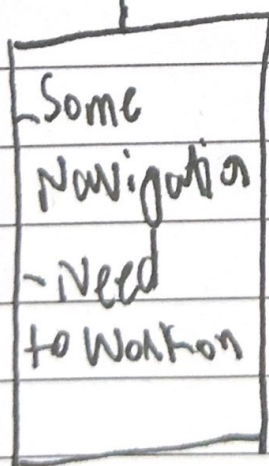 - Some
Navigation
- Need
to Work on